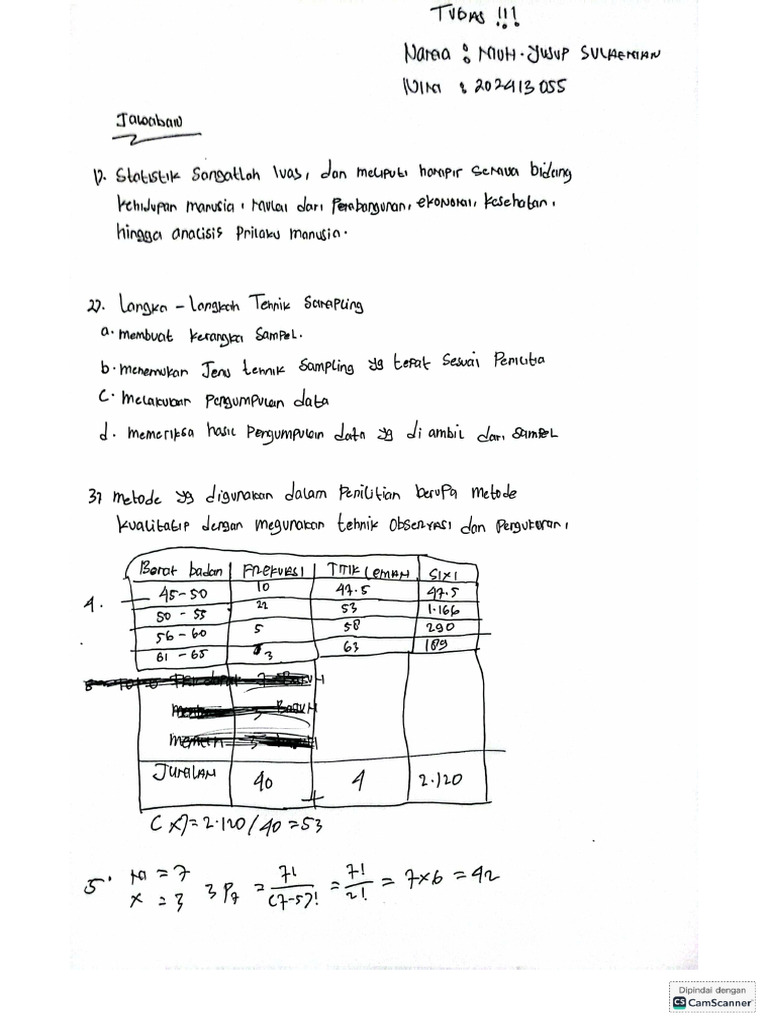 TUGAS !!!
Nama : MUH. YUSUP SULAEMAN
NIM : 202413055
Jawaban
1). Statistik Sangatlah luas, dan meliputi hampir semua bidang
kehidupan manusia, mulai dari Pembangunan, ekonomi, kesehatan,
hingga analisis Prilaku manusia.
2). Langka - Langkah Tehnik Sampling
a. membuat kerangka Sampel.
b. menemukan Jenis tehnik Sampling yg tepat Sesuai
c. melakukan Pengumpulan data
d. memeriksa hasil Pengumpulan data yg di ambil dari Sampel
3) metode yg digunakan dalam Penilitian berupa metode
kualitatip dengan megunakan tehnik Observasi dan Pengukuran,
4.
Berat badan FREKUESI TITIK SIXI
45-50 10 47.5 47.5
50 - 55 22 53 1.166
56 - 60 5 58 290
61 - 65 3 63 189
JUMLAH 40 4 2.120
(X) = 2.120 / 40 = 53
5. n = 7
x = 3 3P7 = 7! / (7-5)! = 7! / 2! = 7x6 = 42
Dipindai dengan
CS CamScanner